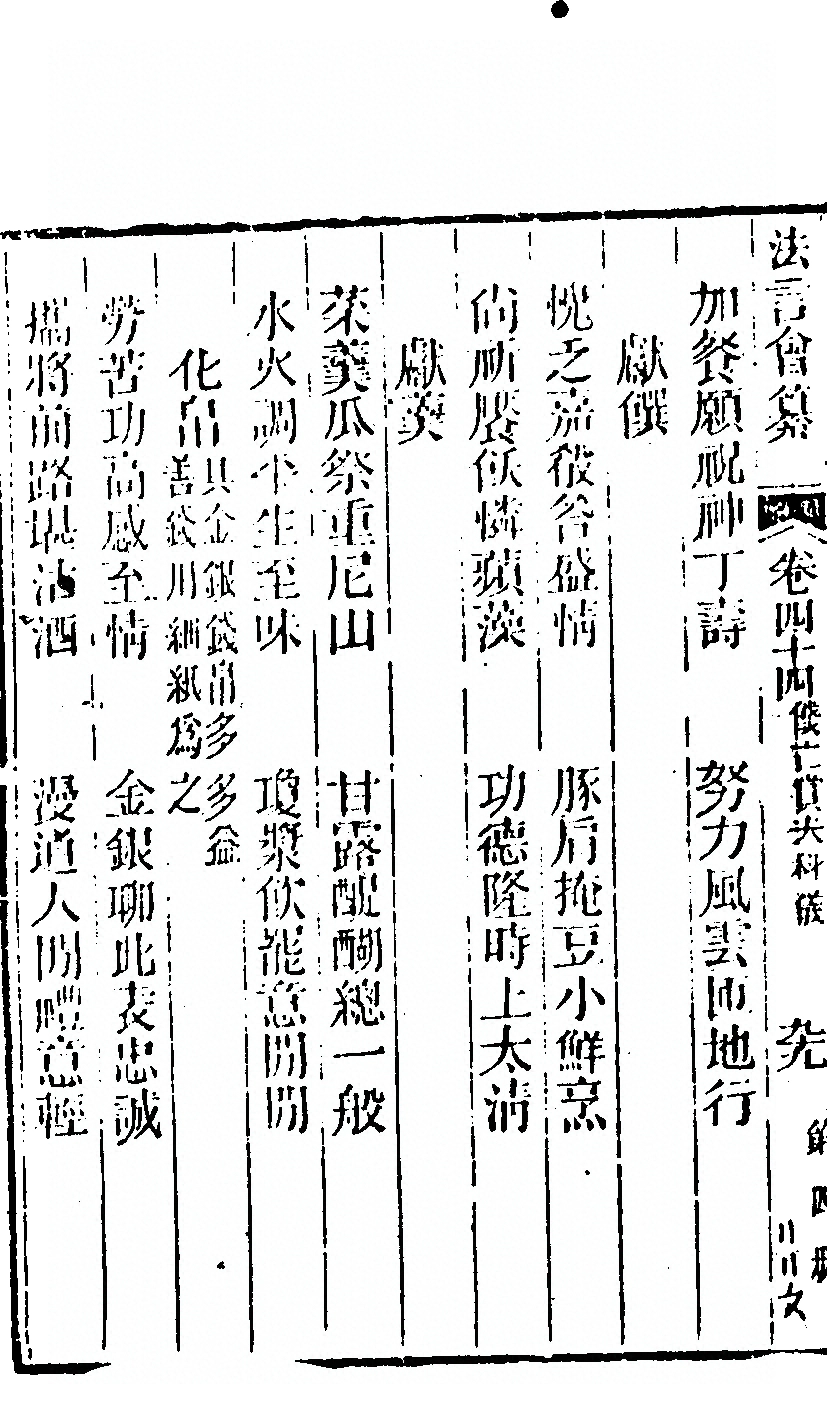 法言會纂 卷四十四 科儀
加餐願祝神丁壽 努力風雲匝地行
獻饌
愧乏嘉殽答盛情 豚肩掩豆小鮮烹
尚祈饜飫憐蘋藻 功德隆時上太清
獻羹
菜羹瓜祭重尼山 甘露醍醐總一般
水火調 生至味 瓊漿飲罷意閒閒
化帛 具金銀錢帛多多益
善錢用細紙爲之
勞苦功高感至情 金銀聊此表忠誠
攜將前路堪沽酒 漫道人間禮意輕